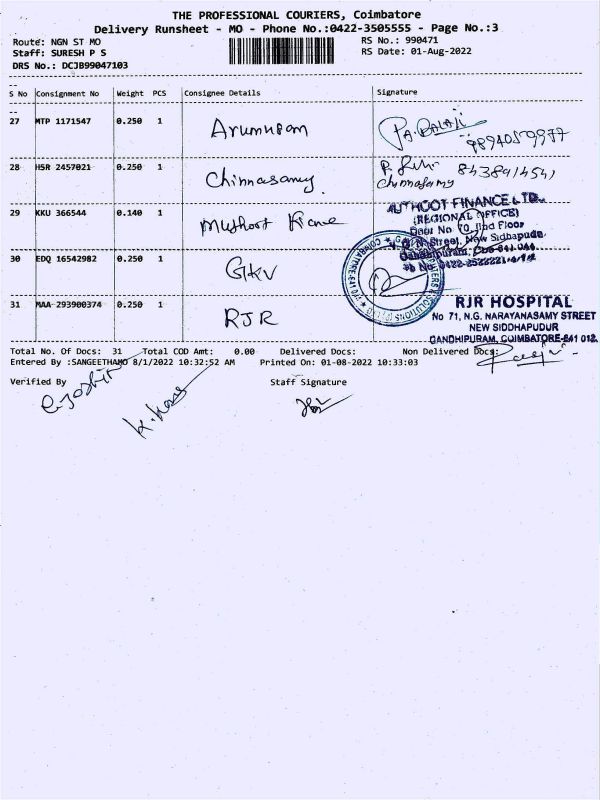 THE PROFESSIONAL COURIERS, Coimbatore
Delivery Runsheet - MO - Phone No.:0422-3505555 - Page No.:3
Route: NGN ST MO
RS No.: 990471
Staff: SURESH P S
RS Date: 01-Aug-2022
DRS No.: DCJB99047103
S No Consignment No Weight PCS Consignee Details Signature
27 MTP 1171547 0.250 1 Arumugam PA.BALAJI
9894059977
28 HSR 2457021 0.250 1 Chinnasamy 8438914541
Chinnasamy
29 KKU 366544 0.140 1 Muthoot Finance MUTHOOT FINANCE LTD.
(REGIONAL OFFICE)
Door No 70, IInd Floor
N Street, New Sidhapudur
Gandhipuram,
30 EDQ 16542982 0.250 1 GKV
31 MAA 293900374 0.250 1 RJR
RJR HOSPITAL
No 71, N.G. NARAYANASAMY STREET
NEW SIDDHAPUDUR
GANDHIPURAM, COIMBATORE-641 012.
Total No. Of Docs: 31 Total COD Amt: 0.00 Delivered Docs: Non Delivered Docs:
Entered By :SANGEETHAMO 8/1/2022 10:32:52 AM Printed On: 01-08-2022 10:33:03
Verified By Staff Signature